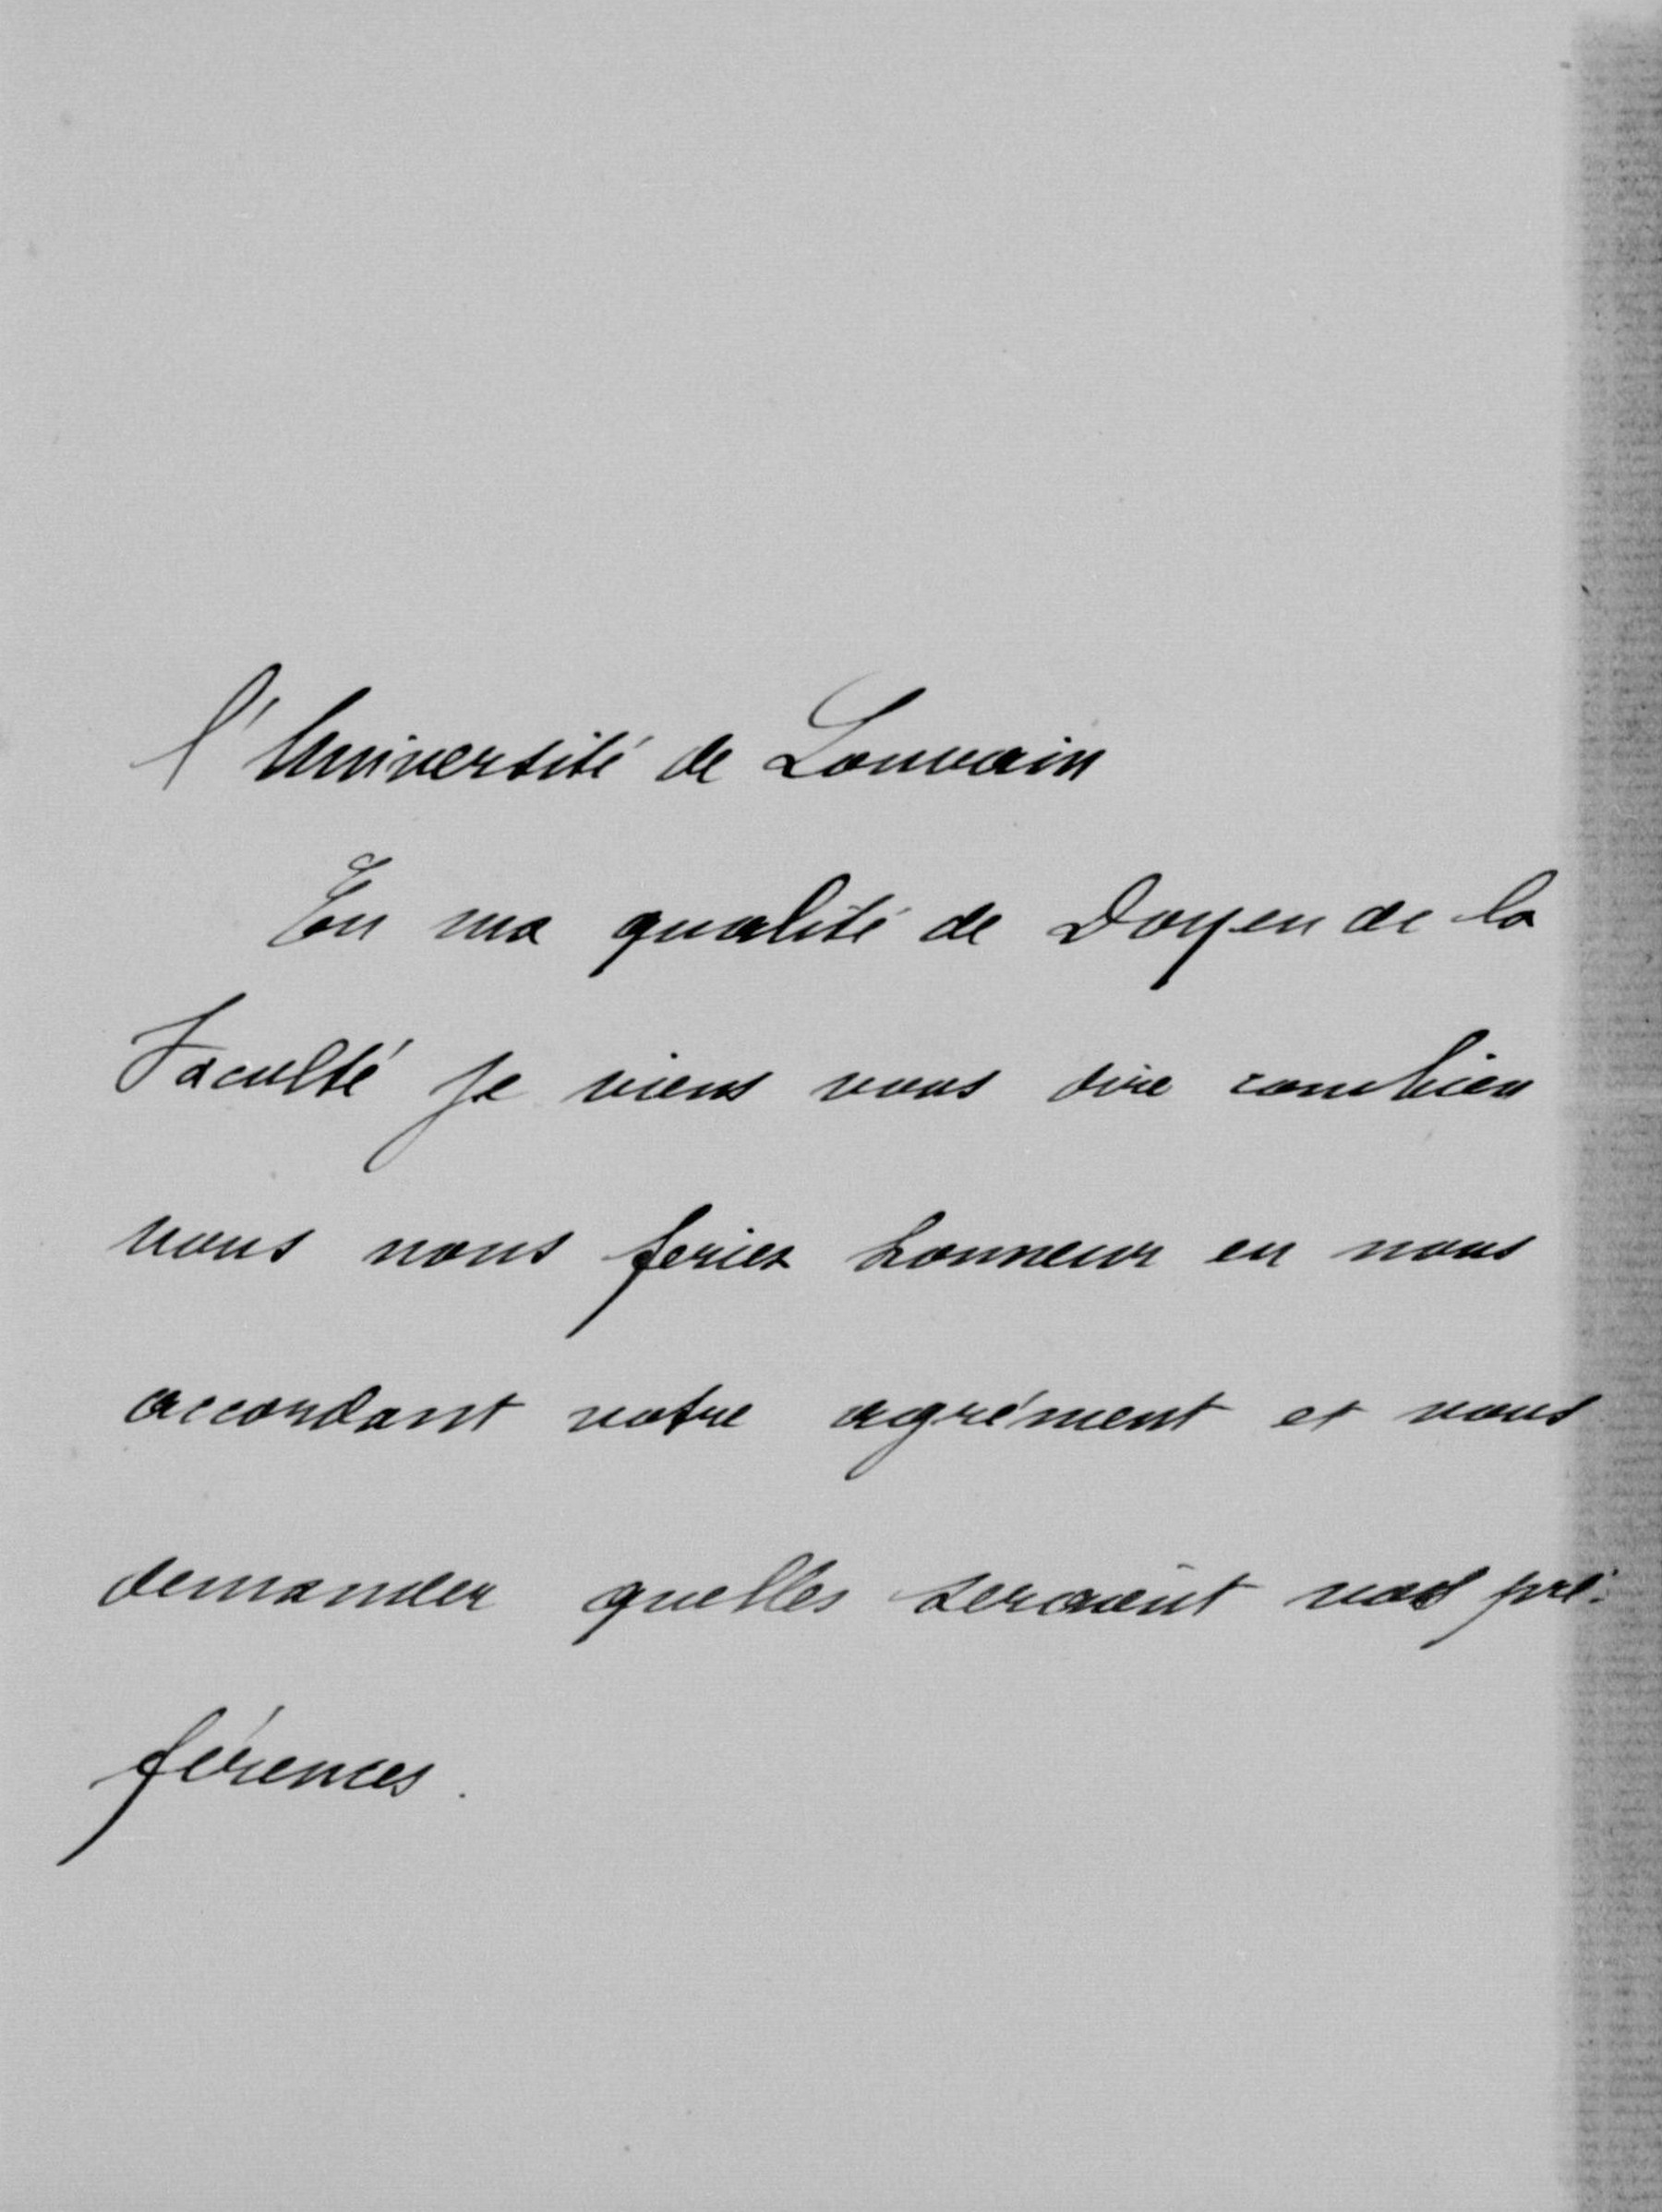 l'Université de Louvain
En ma qualité de Doyen de la
Faculté je viens vous dire combien
vous nous feriez honneur en nous
accordant votre agrément et vous
demander quelles seraient vos pré-
férences.